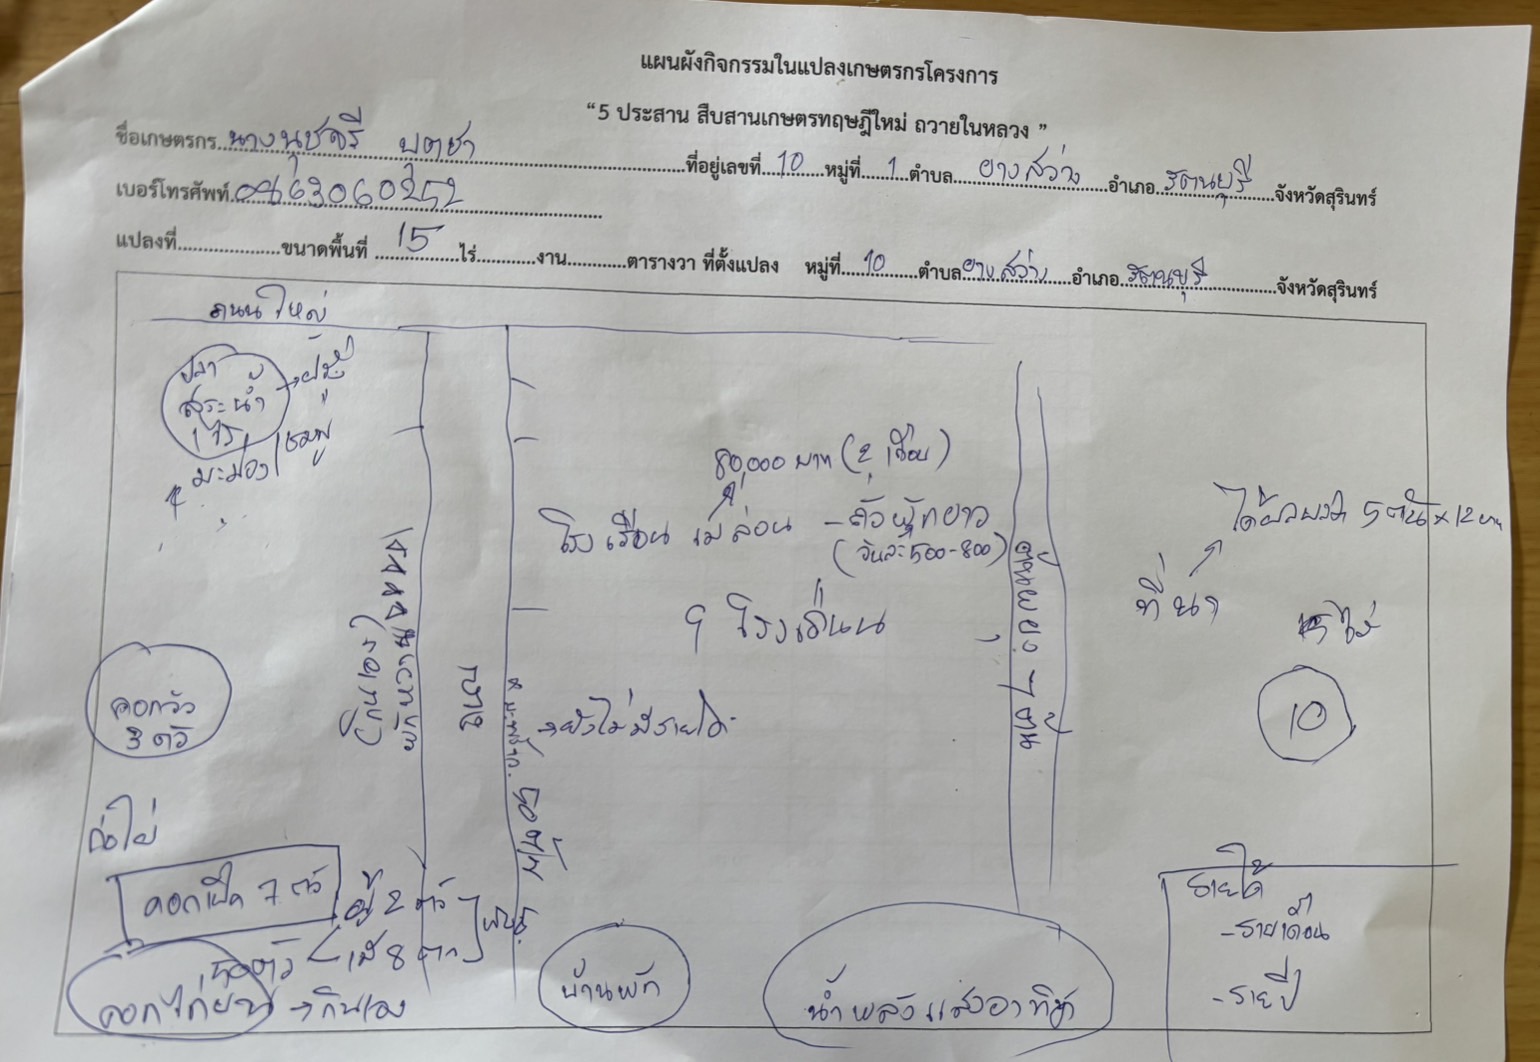 แผนผังกิจกรรมในแปลงเกษตรกรโครงการ
“5 ประสาน สืบสานเกษตรทฤษฎีใหม่ ถวายในหลวง ”
ชื่อเกษตรกร นางนุชจรี บุตชา ที่อยู่เลขที่ 10 หมู่ที่ 1 ตำบล ยางสว่าง อำเภอ รัตนบุรี จังหวัดสุรินทร์
เบอร์โทรศัพท์ 0863060252
แปลงที่ ขนาดพื้นที่ 15 ไร่ งาน ตารางวา ที่ตั้งแปลง หมู่ที่ 10 ตำบล ยางสว่าง อำเภอ รัตนบุรี จังหวัดสุรินทร์
ถนนใหญ่
ปลา
สระน้ำ
1 ไร่
มะม่วง ชมพู่
80,000 บาท (2 เดือน)
โรงเรือน เมล่อน - ถั่วฝักยาว
(วันละ 500-800)
9 โรงเรือน
ได้ผลผลิต 5 ตัน x 12 บาท
ที่นา
ไร่
10
ผักหวาน
(กินเอง)
ถนน
มะพร้าว 50 ต้น
→ ยังไม่มีรายได้
7 ต้น
คอกวัว
3 ตัว
คอกเป็ด 7 ตัว
ผู้ 2 ตัว
เมีย 8 ตัว
คอกไก่ → กินเอง
บ้านพัก
น้ำพลังแสงอาทิตย์
รายได้
- รายเดือน
- รายปี